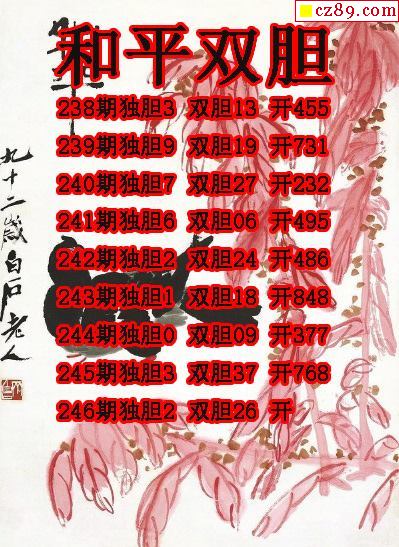 cz89.com
和平双胆
238期独胆3 双胆13 开455
239期独胆9 双胆19 开731
240期独胆7 双胆27 开232
241期独胆6 双胆06 开495
242期独胆2 双胆24 开486
243期独胆1 双胆18 开848
244期独胆0 双胆09 开377
245期独胆3 双胆37 开768
246期独胆2 双胆26 开
九十二岁白石老人